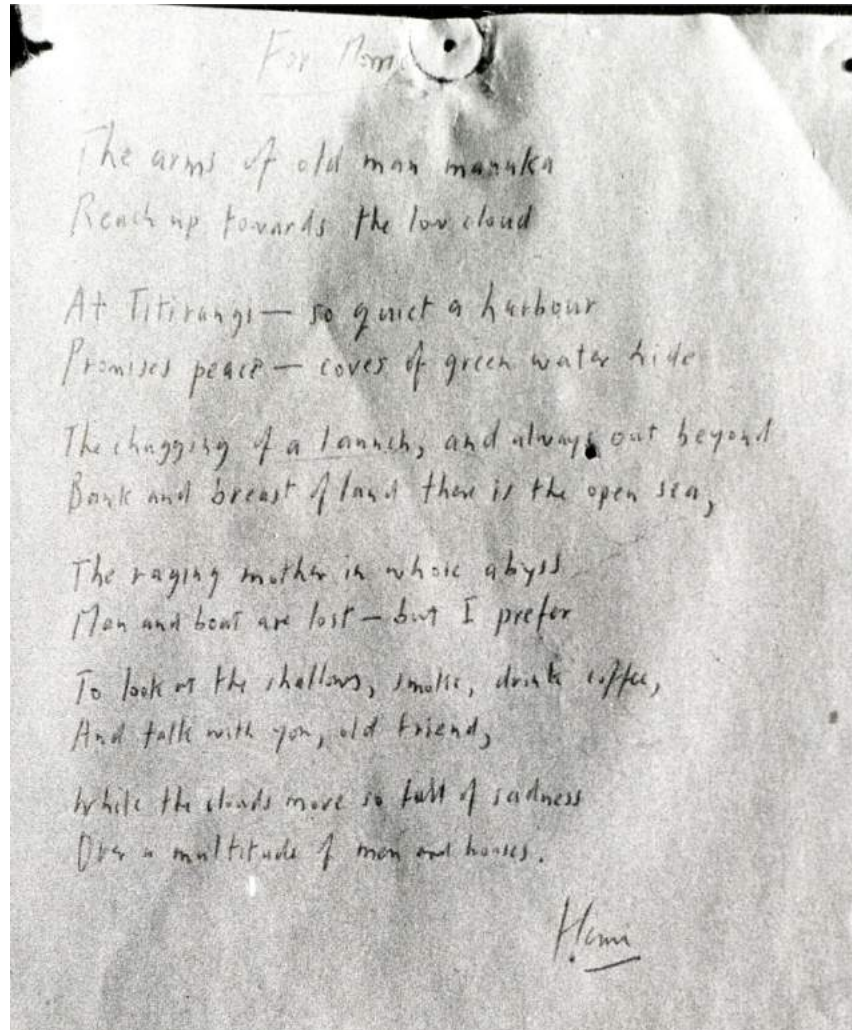 For Mom
The arms of old man manuka
Reach up towards the low cloud
At Titirangi — so quiet a harbour
Promises peace — coves of green water hide
The chugging of a launch, and always out beyond
Bank and breast of land there is the open sea,
The raging mother in whose abyss
Man and boat are lost — but I prefer
To look at the shallows, smoke, drink coffee,
And talk with you, old friend,
While the clouds move so full of sadness
Over a multitude of men and houses.
Hemi